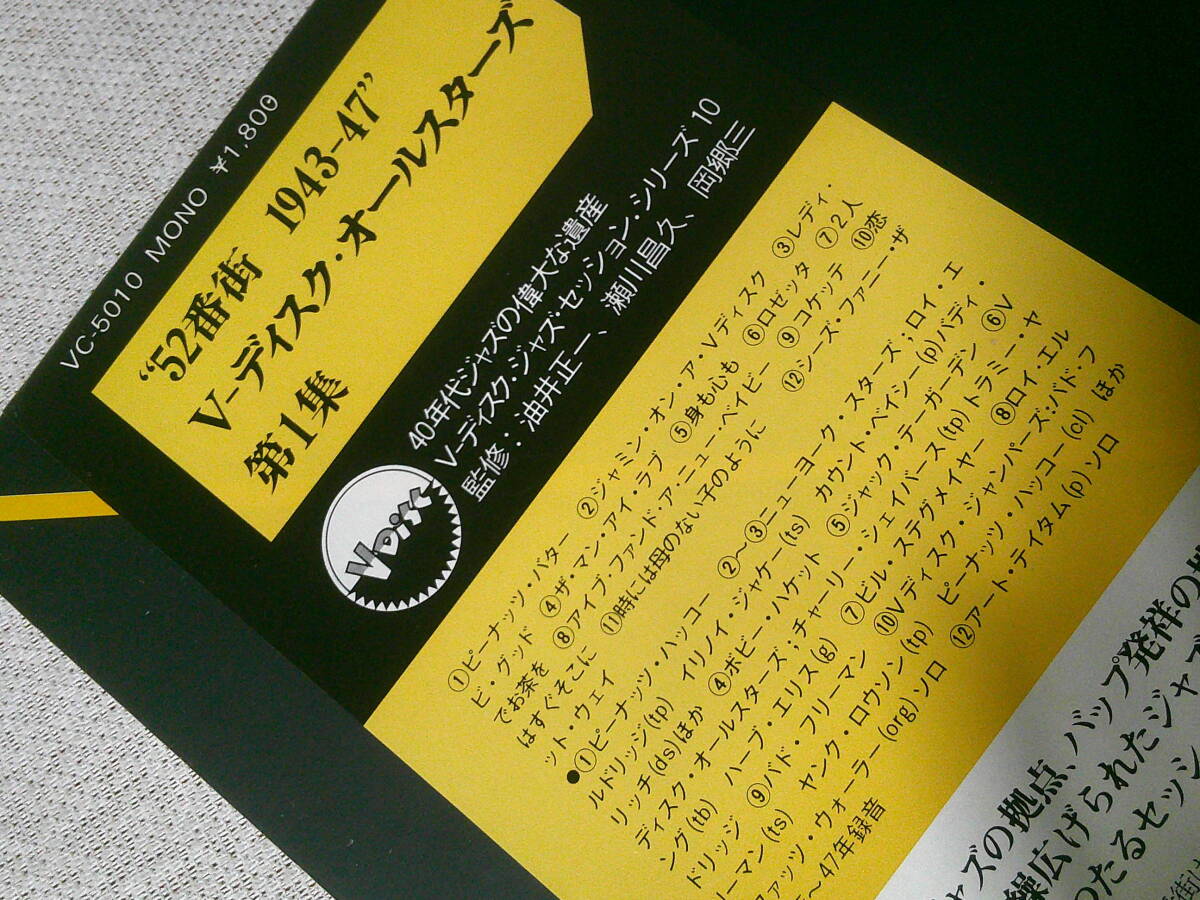 VC-5010 MONO ¥1,800
“52番街 1943-47”
V-ディスク・オールスターズ
第1集
40年代ジャズの偉大な遺産
V-ディスク・ジャズ・セッション・シリーズ 10
監修：油井正一、瀬川昌久、岡郷三
V Disc
①ピーナッツ・バター ②ジャミン・オン・ア・Vディスク ③レディ・
ビ・グッド ④ザ・マン・アイ・ラブ ⑤身も心も ⑥ロゼッタ ⑦2人
でお茶を ⑧アイブ・ファンド・ア・ニュー・ベイビー ⑨コケッテ ⑩恋
はすぐそこに ⑪時には母のない子のように ⑫シーズ・ファニー・ザ
ット・ウェイ
●①ピーナッツ・ハッコー ②〜③ニューヨーク・スターズ；ロイ・エ
ルドリッジ(tp) イリノイ・ジャケー(ts) カウント・ベイシー(p)バディ・
リッチ(ds)ほか ④ボビー・ハケット ⑤ジャック・テーガーデン ⑥V
ディスク・オールスターズ；チャーリー・シェイバース(tp)トラミー・ヤ
ング(tb) ハーブ・エリス(g) ⑦ビル・ステグメイヤー ⑧ロイ・エル
ドリッジ ⑨バド・フリーマン ⑩Vディスク・ジャンパーズ：バド・フ
リーマン(ts) ヤンク・ロウソン(tp) ピーナッツ・ハッコー(cl) ほか
ファッツ・ウォーラー(org)ソロ ⑫アート・テイタム(p)ソロ
〜47年録音
ジャズの拠点、バップ発祥の
繰広げられたジャ
わたるセッシ